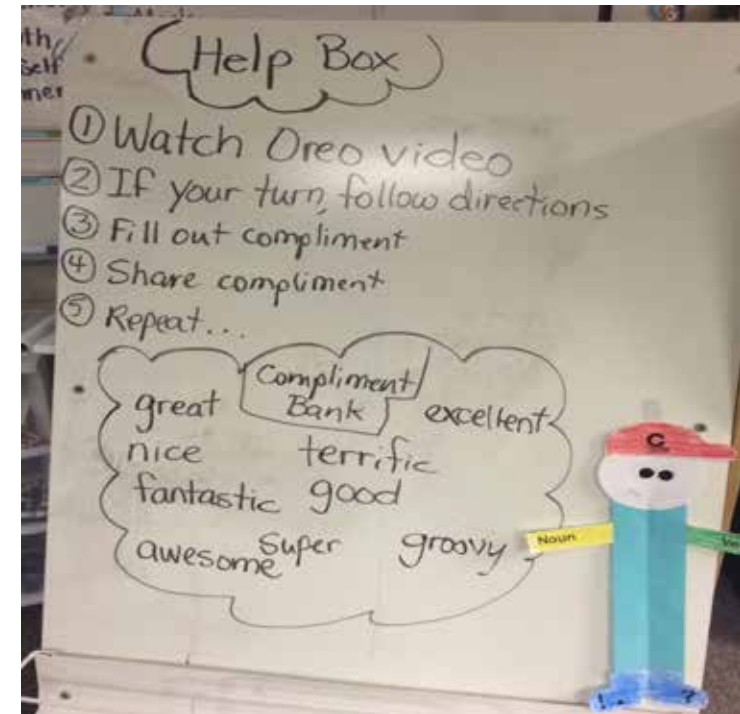 Help Box
① Watch Oreo video
② If your turn, follow directions
③ Fill out compliment
④ Share compliment
⑤ Repeat...
Compliment
Bank
great excellent
nice terrific
fantastic good
awesome super groovy
C
Noun
! . ?